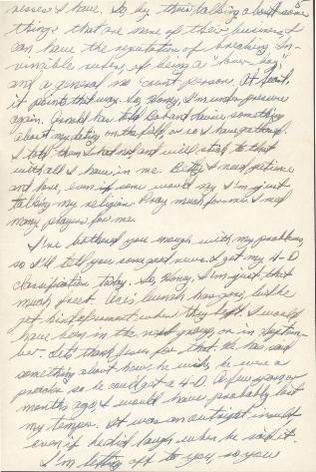 I have. So by their talking about some
things that are none of their business I
can have the reputation of breaking in-
rules, of being a
and a general no count person. At least,
it points that way. So, Honey, I'm under pressure
again. has told that something
about my dating on the field, or so I have gathered.
I told them I had not and will stick to that
with all I have in me. Betty, I need patience
and love, even if some would say I'm just
talking my religion. Pray much for me. I need
many prayers for me.
I've bothered you enough with my problems,
so I'll tell you some good news. I got my 4-D
classification today. So, Honey, I'm just that
much freer. but he
get his deferment when they left. I would
have been in the next group, or in Septem-
ber. Let's thank Jesus for that. He has said
something about how he wish he were a
preacher so he could get a 4-D. A few years or
months ago, I would have probably lost
my temper. It was an outright insult
even if he did laugh when he said it.
I'm letting off to you, so you